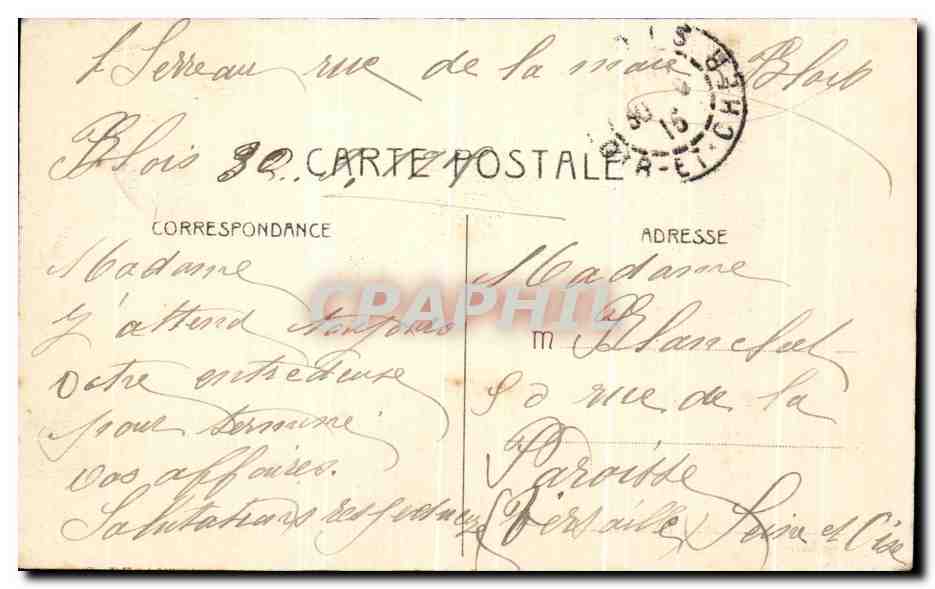 L Serreau rue de la Blois
BLOIS
30
16
LOIR-ET-CHER
Blois 30
CARTE POSTALE
CORRESPONDANCE
Madame
J'attend toujours
votre
pour terminé
vos affaires.
Salutations respectueuse
ADRESSE
Madame
M Blanchet
50 rue de la
Paroisse
(Versaille) Seine et Oise
CPAPHIL